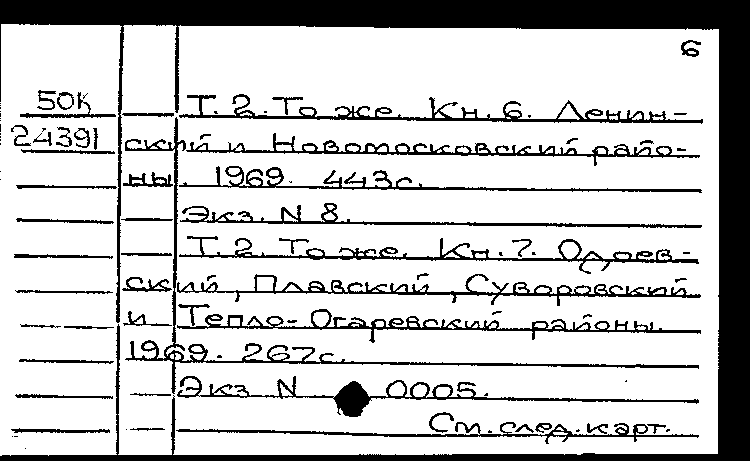 6
50К Т. 2. То же. Кн. 6. Ленин-
24391 ский и Новомосковский райо-
ны. 1969. 443с.
Экз. N 8.
Т. 2. То же. Кн. 7. Одоев-
ский, Плавский, Суворовский
и Тепло-Огаревский районы.
1969. 267с.
Экз N 0005.
См. след. карт.